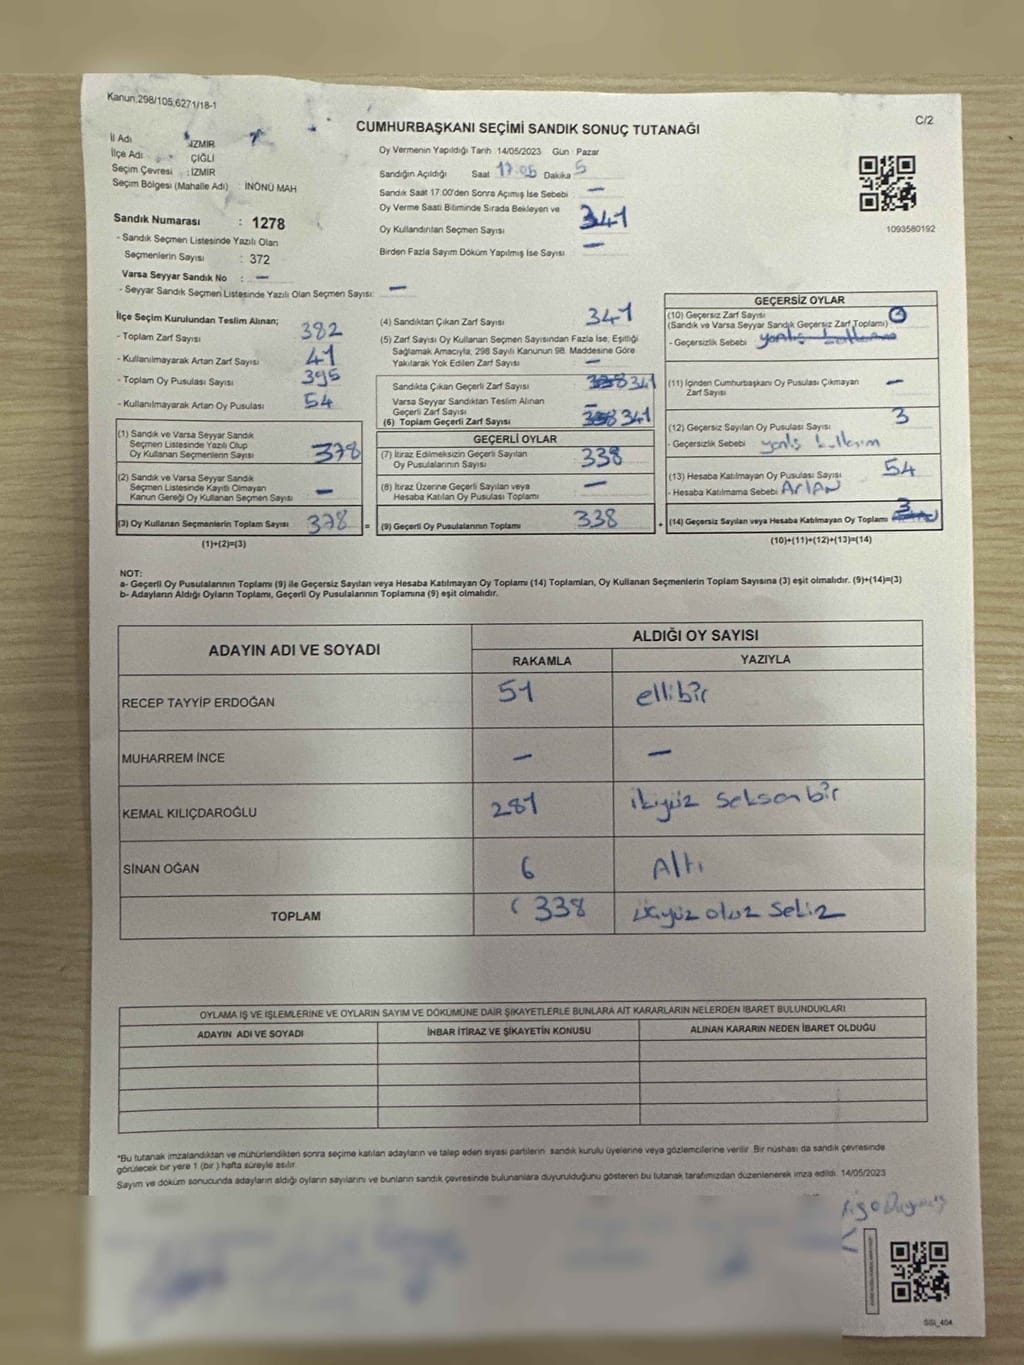 Kanun,298/105,6271/18-1
CUMHURBAŞKANI SEÇİMİ SANDIK SONUÇ TUTANAĞI
C/2
İl Adı : İZMİR
İlçe Adı : ÇİĞLİ
Seçim Çevresi : İZMİR
Seçim Bölgesi (Mahalle Adı) : İNÖNÜ MAH
Sandık Numarası : 1278
- Sandık Seçmen Listesinde Yazılı Olan
Seçmenlerin Sayısı : 372
Varsa Seyyar Sandık No : —
- Seyyar Sandık Seçmen Listesinde Yazılı Olan Seçmen Sayısı: —
Oy Vermenin Yapıldığı Tarih 14/05/2023 Gün : Pazar
Sandığın Açıldığı Saat 17:05 Dakika 5
Sandık Saat 17:00'den Sonra Açımış İse Sebebi —
Oy Verme Saati Bitiminde Sırada Bekleyen ve
Oy Kullandırılan Seçmen Sayısı 341
Birden Fazla Sayım Döküm Yapılmış İse Sayısı —
1093580192
İlçe Seçim Kurulundan Teslim Alınan;
- Toplam Zarf Sayısı 382
- Kullanılmayarak Artan Zarf Sayısı 41
- Toplam Oy Pusulası Sayısı 395
- Kullanılmayarak Artan Oy Pusulası 54
(1) Sandık ve Varsa Seyyar Sandık
Seçmen Listesinde Yazılı Olup
Oy Kullanan Seçmenlerin Sayısı 378
(2) Sandık ve Varsa Seyyar Sandık
Seçmen Listesinde Kayıtlı Olmayan
Kanun Gereği Oy Kullanan Seçmen Sayısı —
(3) Oy Kullanan Seçmenlerin Toplam Sayısı 378 =
(1)+(2)=(3)
(4) Sandıktan Çıkan Zarf Sayısı 341
(5) Zarf Sayısı Oy Kullanan Seçmen Sayısından Fazla İse, Eşitliği
Sağlamak Amacıyla, 298 Sayılı Kanunun 98. Maddesine Göre
Yakılarak Yok Edilen Zarf Sayısı —
Sandıkta Çıkan Geçerli Zarf Sayısı 338 341
Varsa Seyyar Sandıktan Teslim Alınan
Geçerli Zarf Sayısı —
(6) Toplam Geçerli Zarf Sayısı 338 341
GEÇERLİ OYLAR
(7) İtiraz Edilmeksizin Geçerli Sayılan
Oy Pusulalarının Sayısı 338
(8) İtiraz Üzerine Geçerli Sayılan veya
Hesaba Katılan Oy Pusulası Toplamı —
(9) Geçerli Oy Pusulalarının Toplamı 338 +
GEÇERSİZ OYLAR
(10) Geçersiz Zarf Sayısı 0
(Sandık ve Varsa Seyyar Sandık Geçersiz Zarf Toplamı)
- Geçersizlik Sebebi yanlış kullanım
(11) İçinden Cumhurbaşkanı Oy Pusulası Çıkmayan
Zarf Sayısı —
(12) Geçersiz Sayılan Oy Pusulası Sayısı 3
- Geçersizlik Sebebi yanlış kullanım
(13) Hesaba Katılmayan Oy Pusulası Sayısı 54
- Hesaba Katılmama Sebebi ARTAN
(14) Geçersiz Sayılan veya Hesaba Katılmayan Oy Toplamı 3
(10)+(11)+(12)+(13)=(14)
NOT:
a- Geçerli Oy Pusulalarının Toplamı (9) ile Geçersiz Sayılan veya Hesaba Katılmayan Oy Toplamı (14) Toplamları, Oy Kullanan Seçmenlerin Toplam Sayısına (3) eşit olmalıdır. (9)+(14)=(3)
b- Adayların Aldığı Oyların Toplamı, Geçerli Oy Pusulalarının Toplamına (9) eşit olmalıdır.
ADAYIN ADI VE SOYADI
ALDIĞI OY SAYISI
RAKAMLA YAZIYLA
RECEP TAYYİP ERDOĞAN 51 ellibir
MUHARREM İNCE — —
KEMAL KILIÇDAROĞLU 281 ikiyüz seksen bir
SİNAN OĞAN 6 Altı
TOPLAM 338 üçyüz otuz sekiz
OYLAMA İŞ VE İŞLEMLERİNE VE OYLARIN SAYIM VE DÖKÜMÜNE DAİR ŞİKAYETLERLE BUNLARA AİT KARARLARIN NELERDEN İBARET BULUNDUKLARI
ADAYIN ADI VE SOYADI İHBAR İTİRAZ VE ŞİKAYETİN KONUSU ALINAN KARARIN NEDEN İBARET OLDUĞU
*Bu tutanak imzalandıktan ve mühürlendikten sonra seçime katılan adayların ve talep eden siyasi partilerin sandık kurulu üyelerine veya gözlemcilerine verilir. Bir nüshası da sandık çevresinde
görülecek bir yere 1 (bir ) hafta süreyle asılır.
Sayım ve döküm sonucunda adayların aldığı oyların sayılarını ve bunların sandık çevresinde bulunanlara duyurulduğunu gösteren bu tutanak tarafımızdan düzenlenerek imza edildi. 14/05/2023